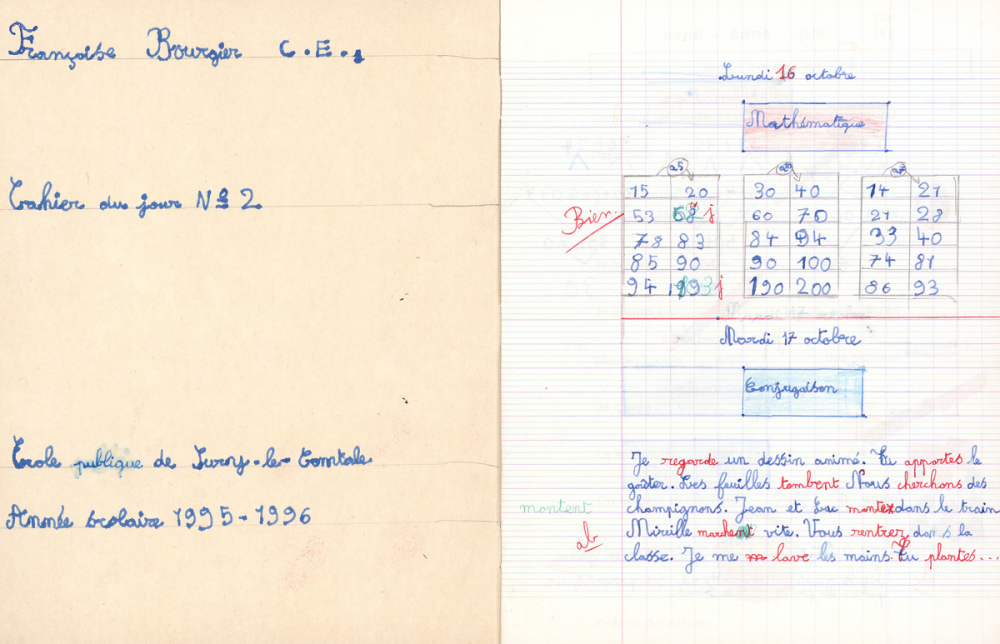 Françoise Bourgier C.E.1
Cahier du jour Nº 2
École publique de Ivroy-le-Comtale
Année scolaire 1995-1996
Lundi 16 octobre
Mathématique
a5
15 20 30 40 14 21
Bien 53 58 j 60 70 21 28
78 83 84 94 33 40
85 90 90 100 74 81
94 j 190 200 86 93
Mardi 17 octobre
Conjugaison
Je regarde un dessin animé. Tu apportes le
goûter. Les feuilles tombent Nous cherchons des
montent champignons. Jean et Luc montez dans le train
ab Mireille marchent vite. Vous rentrez dans la
classe. Je me m lave les mains. Tu plantes...